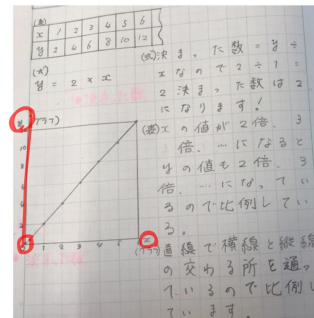 (表)
x 1 2 3 4 5 6
y 2 4 6 8 10 12
(式)
y = 2 × x
(式)決まった数=y÷
xなので2÷1=
2 決まった数は2
になります!
(グラフ)
y
10
8
6
4
2
0 1 2 3 4 5 x
(表)xの値が2倍、3
倍、…になると
yの値も2倍、3
倍、…になってい
るので比例してい
る。
(グラフ)直線で横線と縦線
の交わる所を通っ
ているので比例し
ています。